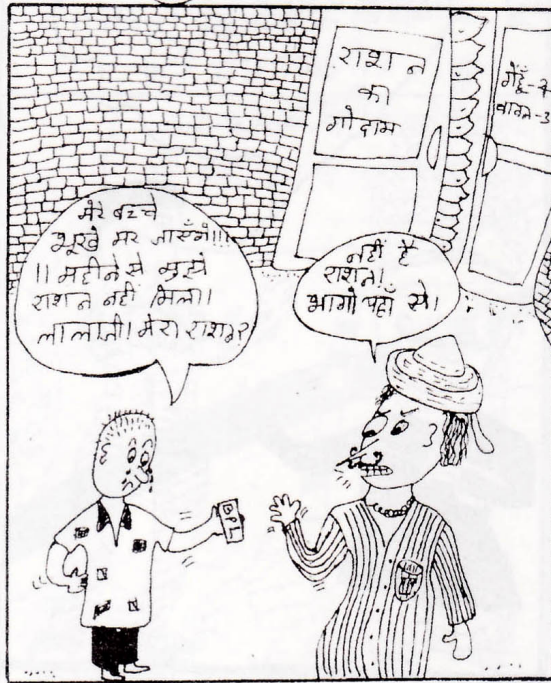 राशन
का
गोदाम
गेहूँ-२
चावल-३
मेरे बच्चे
भूखे मर जाएँगे!!!
11 महीने से मुझे
राशन नहीं मिला।
लालाजी। मेरा राशन?
नहीं है
राशन।
भागो यहाँ से।
BPL